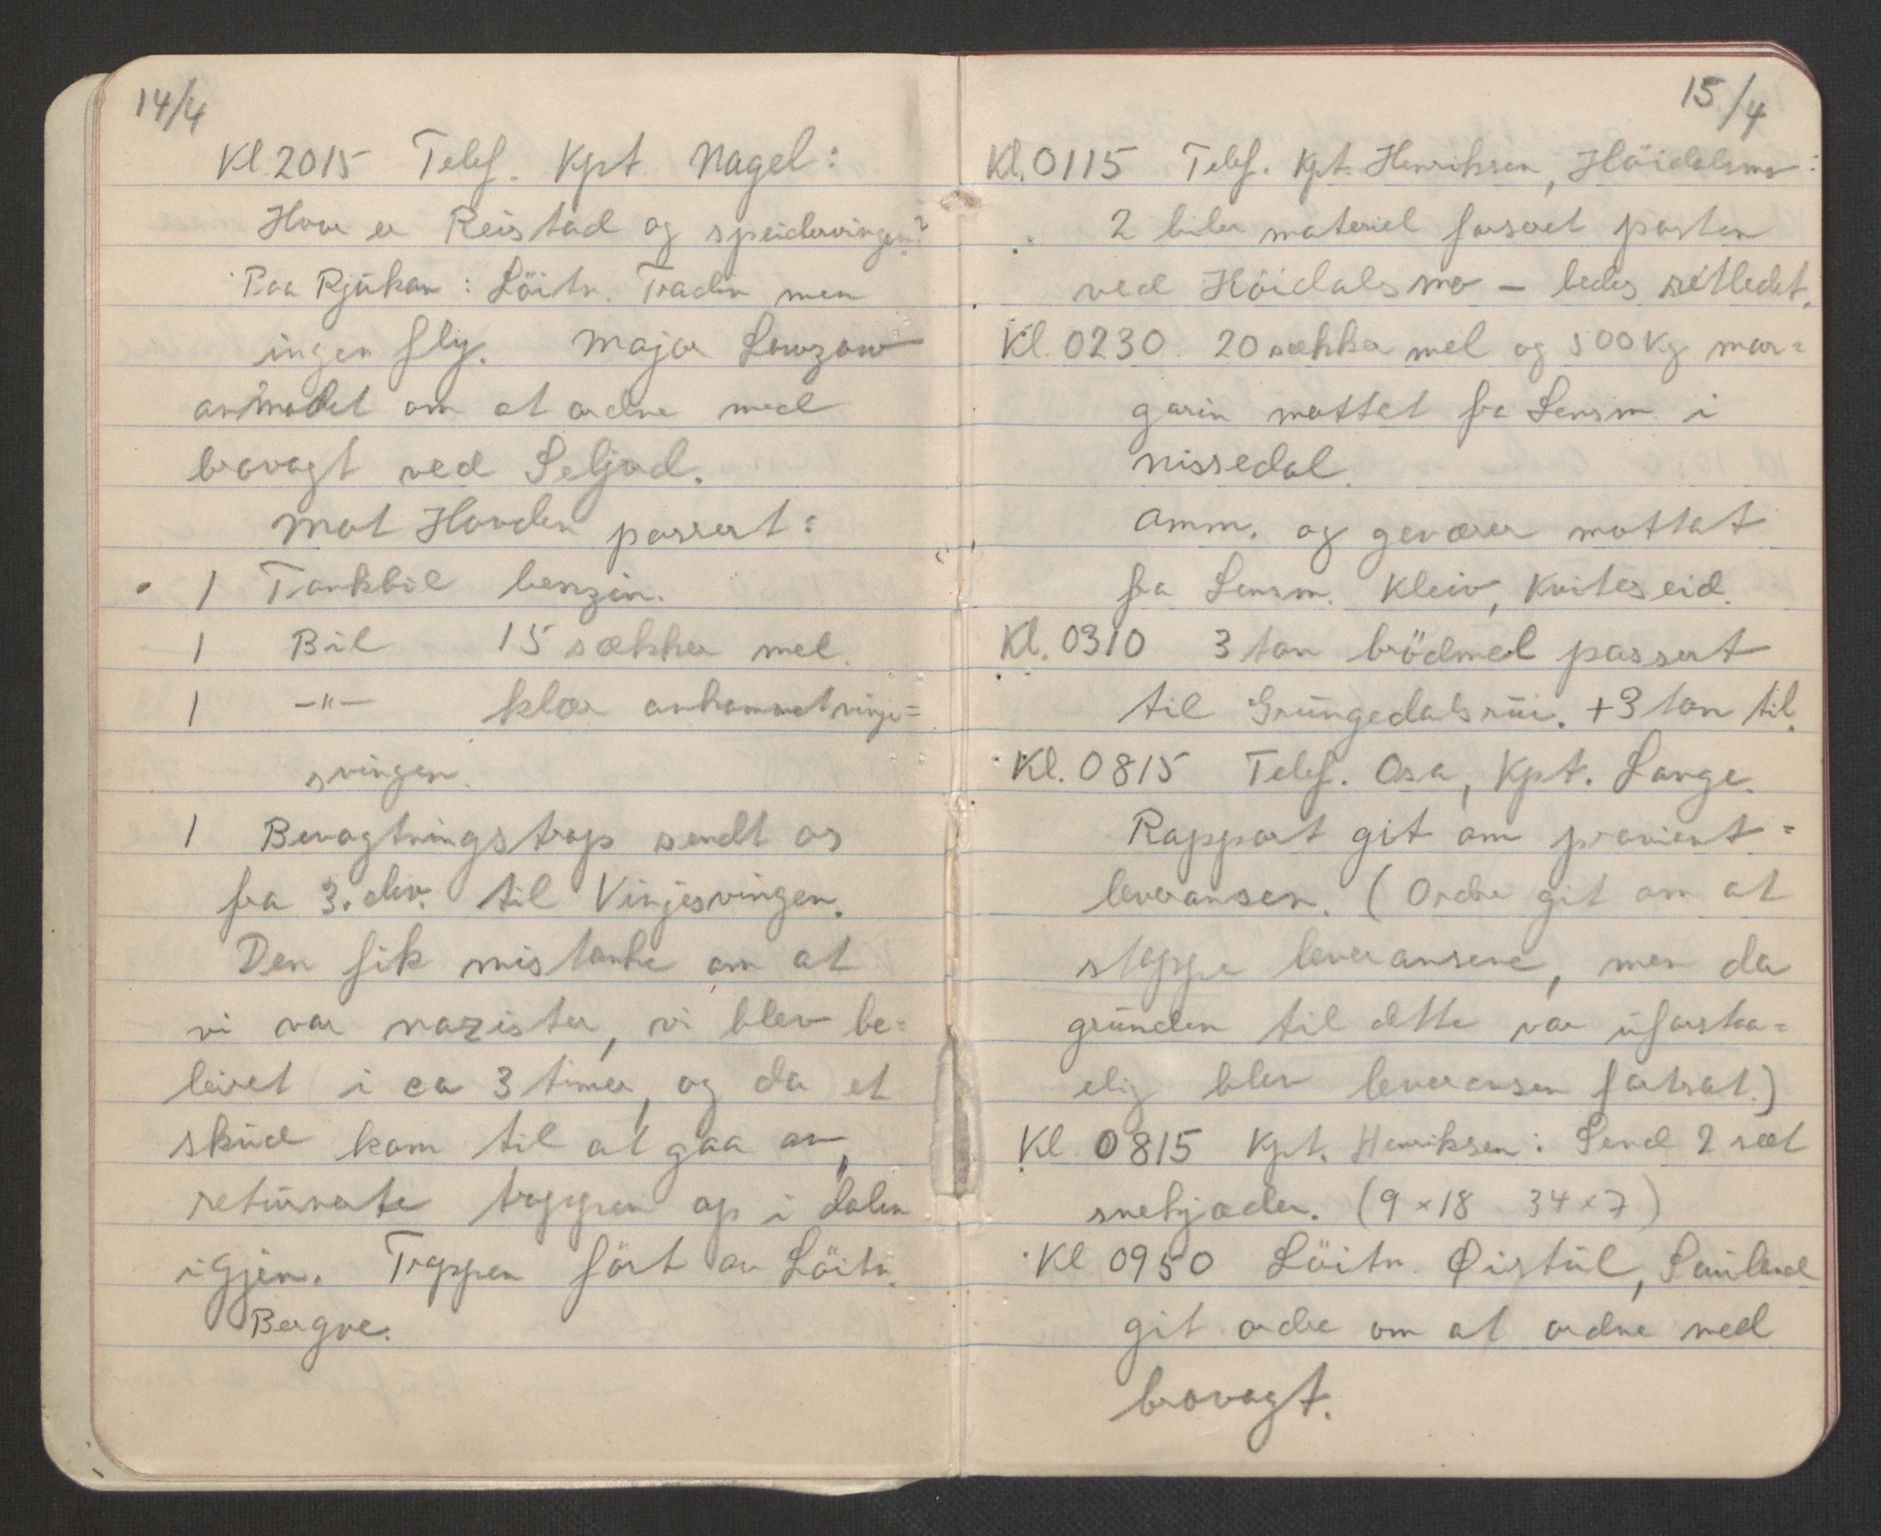 14/4
Kl. 2015 Telef. Kpt. Nagel:
Hvor er Reistad og speidervingen?
Paa Rjukan: Löitn. Traden men
ingen fly. Major Lowzow
anmodet om at ordne med
brovagt ved Seljord.
Mot Hovden passert:
1 Tankbil benzin.
1 Bil 15 sækker mel.
1 -"- klær ankommet vinje=
svingen.
1 Bevogtningstrop sendt os
fra 3. div. til Vinjesvingen.
Den fik mistanke om at
vi var nazister, vi blev be=
leiret i ca 3 timer, og da et
skud kom til at gaa av,
returnerte troppen op i dalen
igjen. Troppen ført av Löitn.
Bergve.
15/4
Kl. 0115 Telf. Kpt. Henriksen, Höidalsmo:
2 biler materiel forseret posten
ved Höidalsmo - bedes
Kl. 0230. 20 sækker mel og 500 kg mar=
garin mottat fra Lensm. i
Nissedal.
Amm. og geværer mottat
fra Lensm. Kleiv, Kviteseid.
Kl. 0310 3 ton brödmel passert
til Grungedal + 3 ton til.
Kl. 0815 Telef. Osa, Kpt. Lange.
Rapport git om proviant=
leveransen. (Ordre git om at
stoppe leveransene, men da
grunden til dette var uforstaa=
elig blev leveransen fortsat.)
Kl 0815 Kpt. Henriksen: Send 2 sæt
snekjæder. (9 x 18 34 x 7)
Kl 0950 Löitn. Øistul, Sauland
git ordre om at ordne med
brovagt.